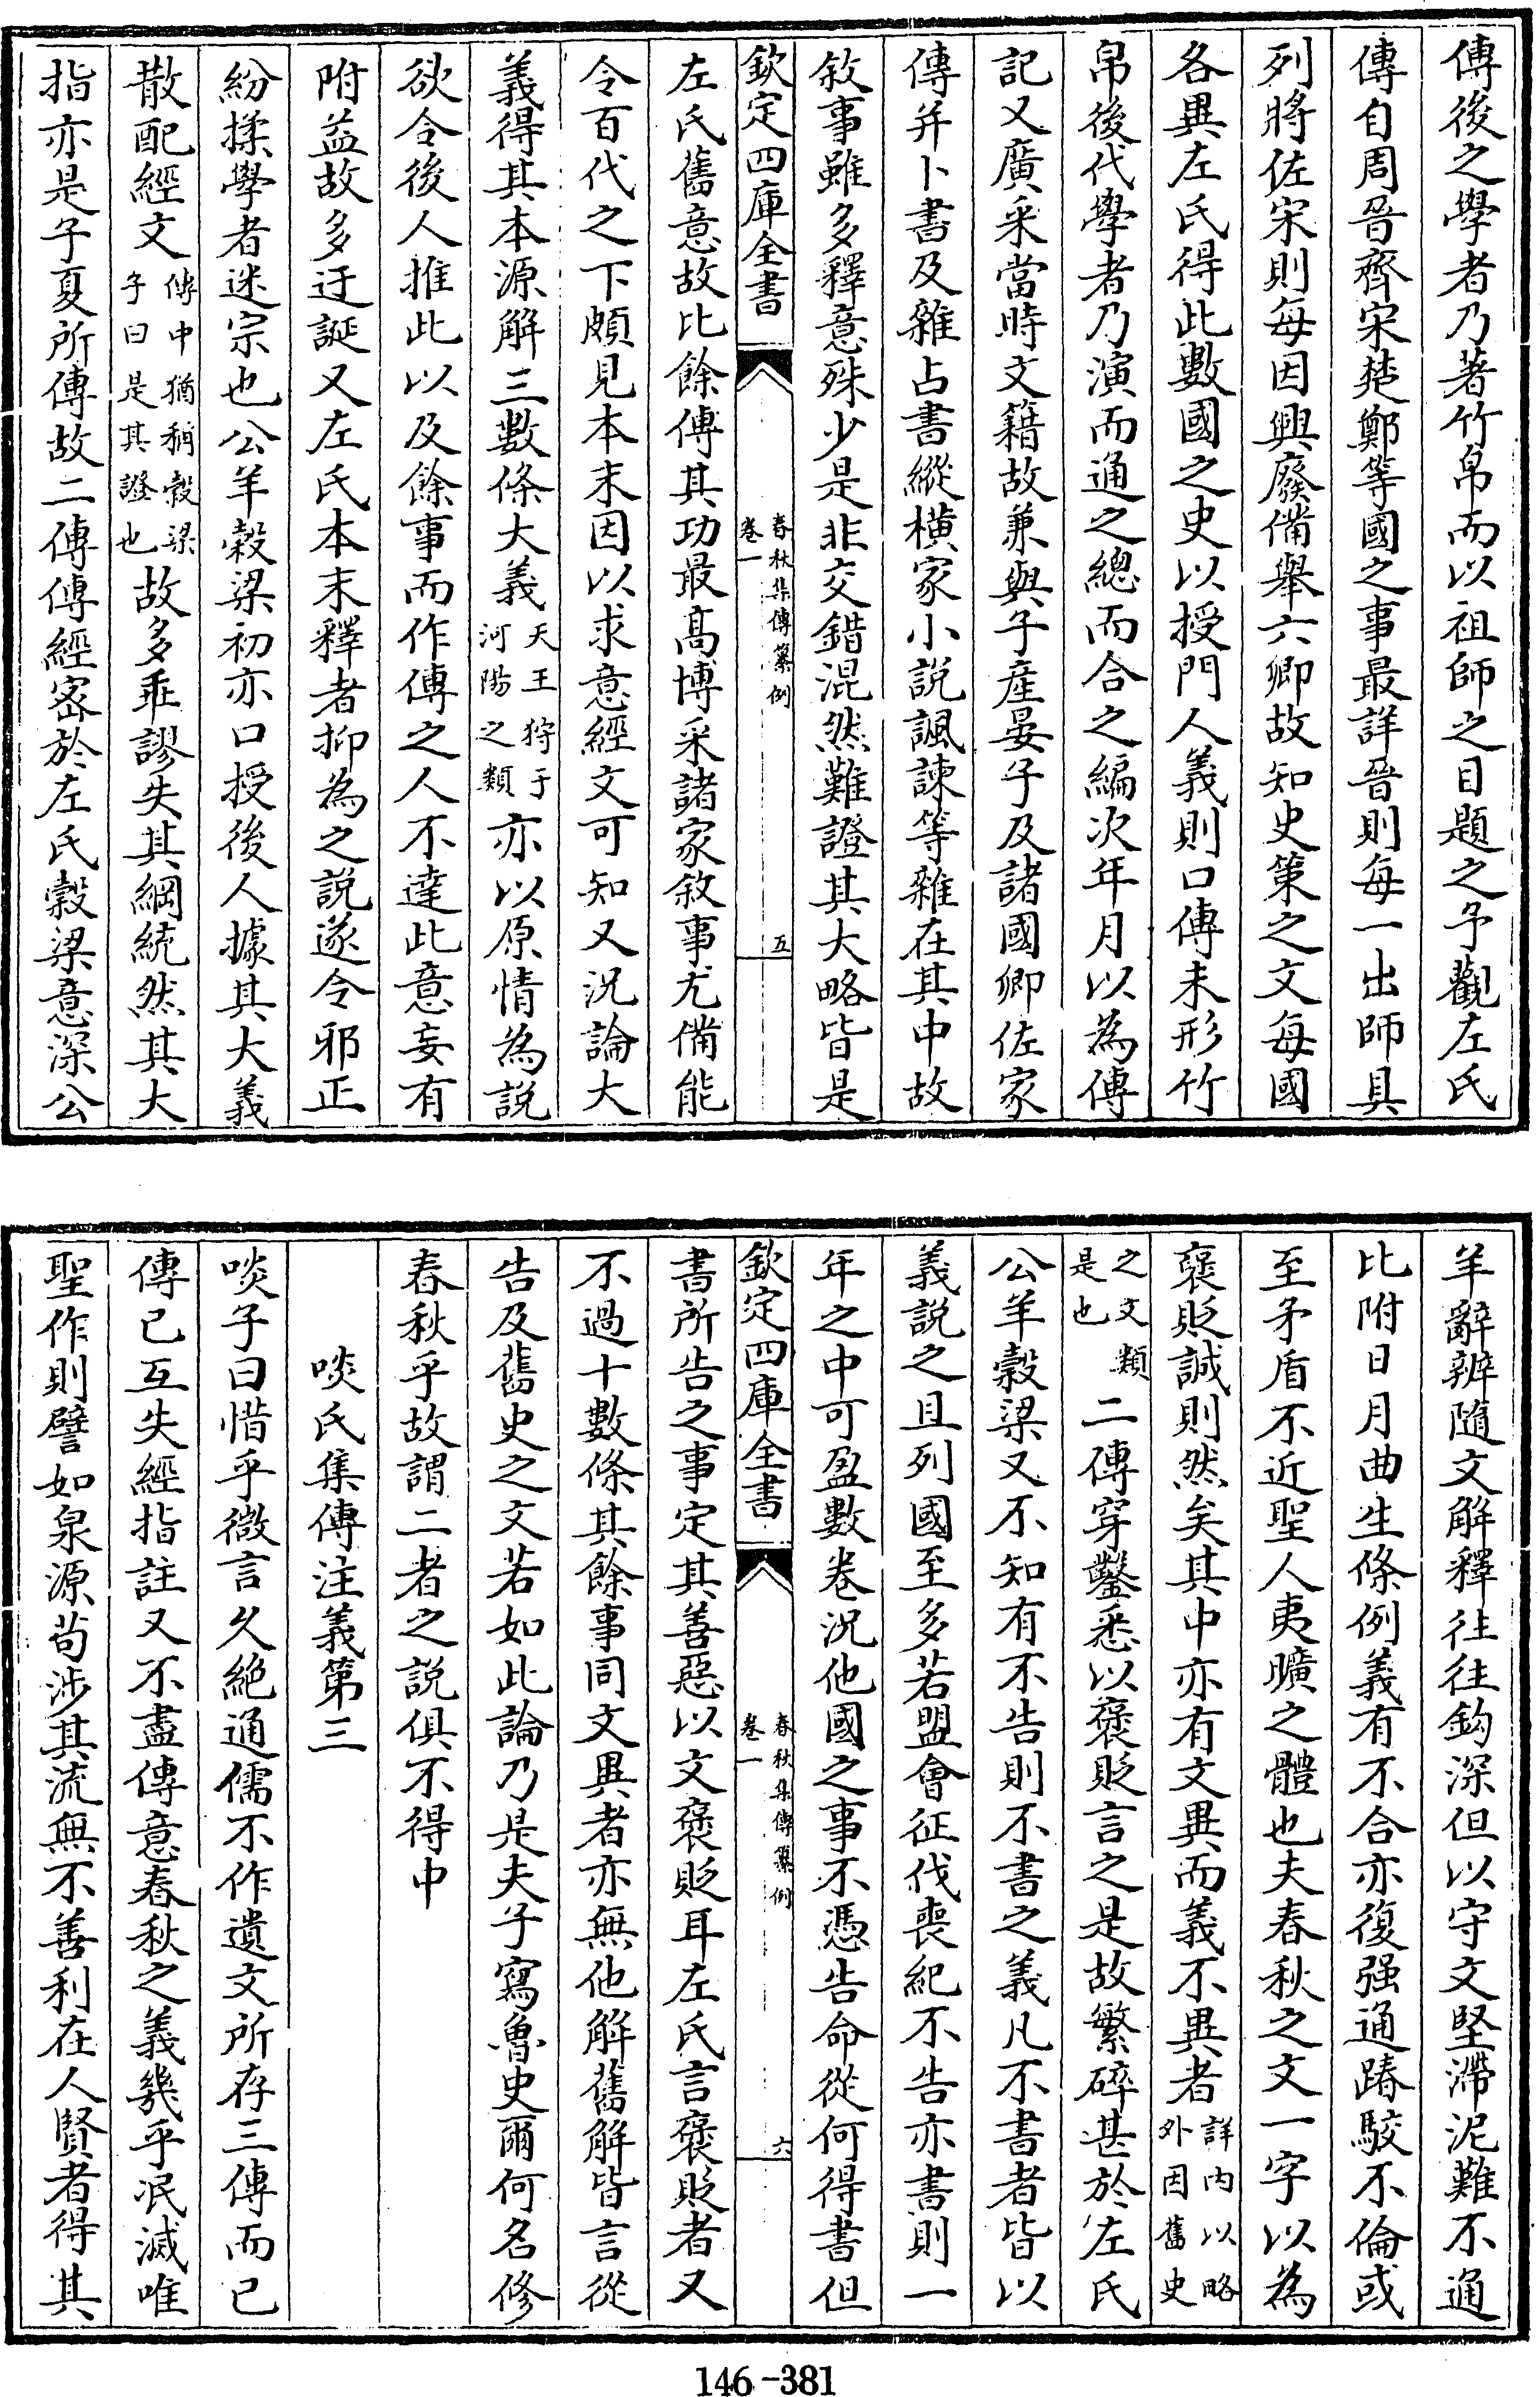 傳後之學者乃著竹帛而以祖師之目題之予觀左氏
傳自周晉齊宋楚鄭等國之事最詳晉則每一出師具
列將佐宋則每因興廢備舉六卿故知史策之文每國
各異左氏得此數國之史以授門人義則口傳未形竹
帛後代學者乃演而通之總而合之編次年月以為傳
記又廣采當時文籍故兼與子產晏子及諸國卿佐家
傳并卜書及雜占書縱橫家小説諷諫等雜在其中故
敘事雖多釋意殊少是非交錯混然難證其大略皆是
欽定四庫全書
春秋集傳纂例
卷一
五
左氏舊意故比餘傳其功最髙博采諸家敘事尤備能
令百代之下頗見本末因以求意經文可知又況論大
義得其本源解三數條大義天王狩于河陽之類亦以原情為説
欲令後人推此以及餘事而作傳之人不達此意妄有
附益故多迂誕又左氏本末釋者抑為之説遂令邪正
紛揉學者迷宗也公羊穀梁初亦口授後人據其大義
散配經文傳中猶稱穀梁子曰是其證也故多乖謬失其綱統然其大
指亦是子夏所傳故二傳傳經宻於左氏穀梁意深公
羊辭辨隨文解釋往往鈎深但以守文堅滯泥難不通
比附日月曲生條例義有不合亦復强通踳駮不倫或
至矛盾不近聖人夷曠之體也夫春秋之文一字以為
褒貶誠則然矣其中亦有文異而義不異者詳内以略外因舊史
之文類是也二傳穿鑿悉以褒貶言之是故繁碎甚於左氏
公羊穀梁又不知有不告則不書之義凡不書者皆以
義説之且列國至多若盟會征伐喪紀不告亦書則一
年之中可盈數卷況他國之事不憑告命從何得書但
欽定四庫全書
春秋集傳纂例
卷一
六
書所告之事定其善惡以文褒貶耳左氏言褒貶者又
不過十數條其餘事同文異者亦無他解舊解皆言從
告及舊史之文若如此論乃是夫子寫魯史爾何名修
春秋乎故謂二者之説俱不得中
啖氏集傳注義第三
啖子曰惜乎微言久絶通儒不作遺文所存三傳而已
傳已互失經指註又不盡傳意春秋之義幾乎泯滅唯
聖作則譬如泉源苟涉其流無不善利在人賢者得其
146-381